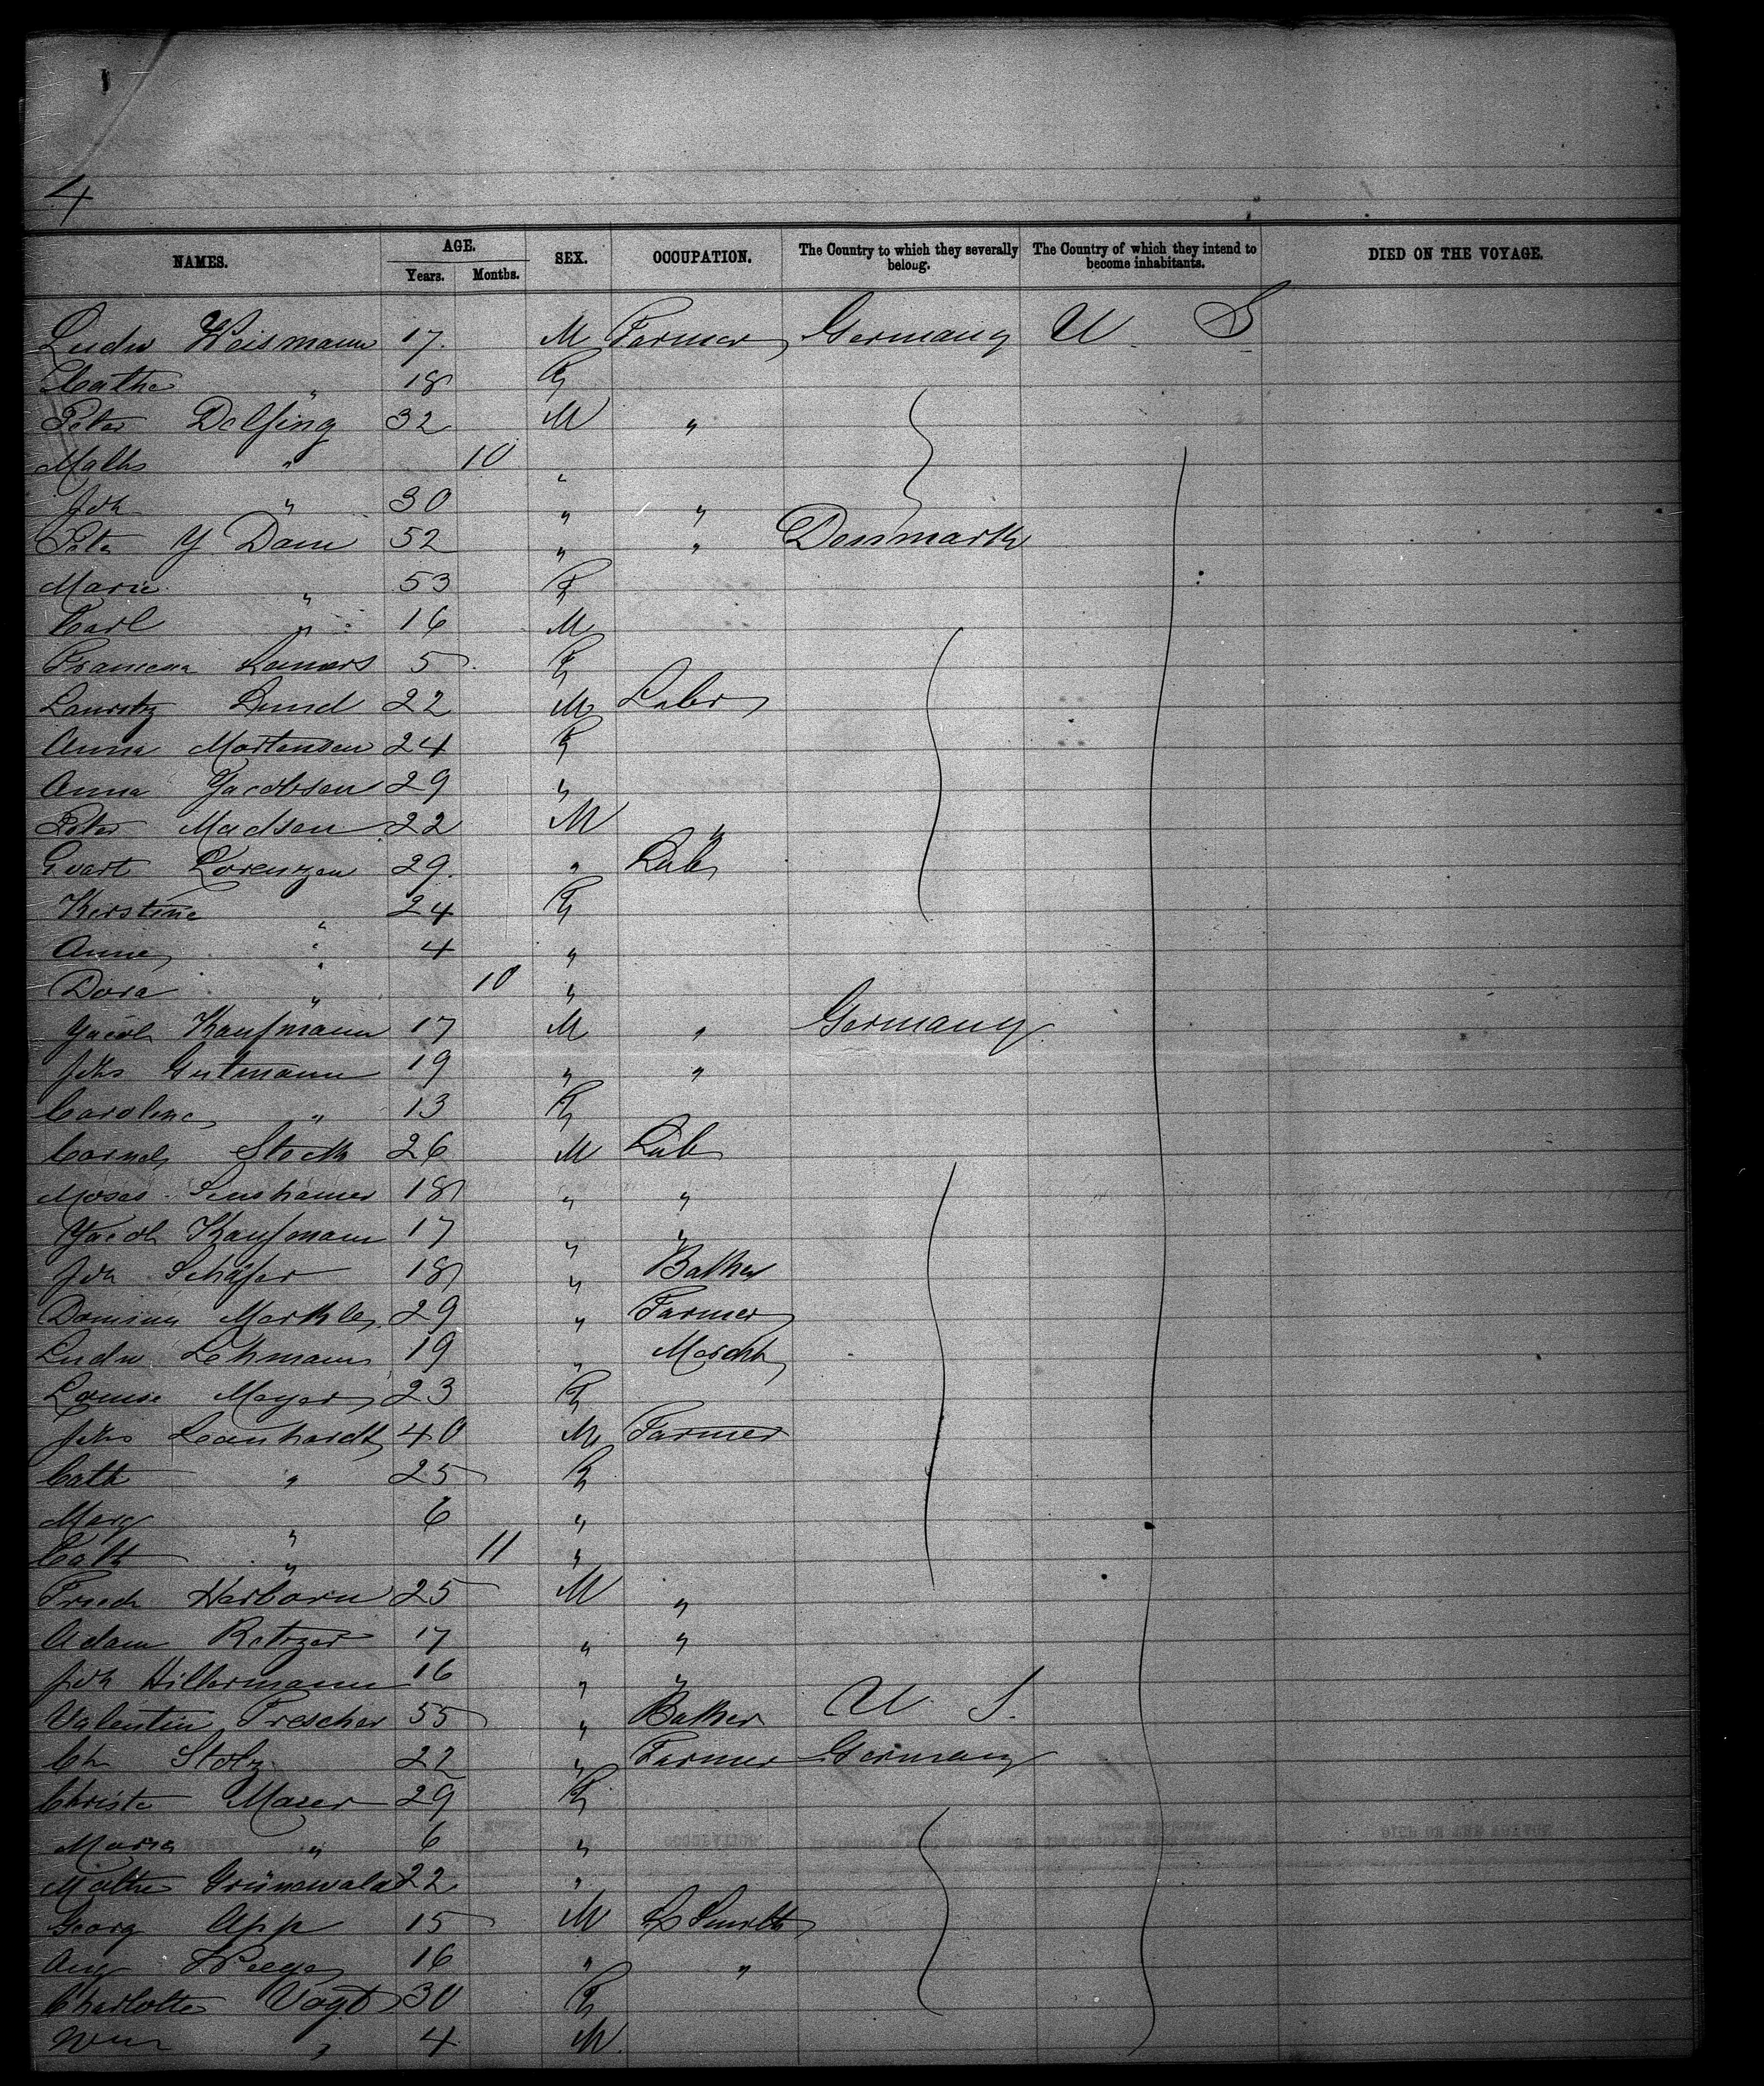 4
NAMES. AGE. SEX. OCCUPATION. The Country to which they severally belong. The Country of which they intend to become inhabitants. DIED ON THE VOYAGE.
Years. Months.
Ludw Weismann 17 M Farmer Germany U S
Cathe " 18 F
Peter Delfing 32 M "
Maths " 10 "
Joh " 30 " "
Peter Y Dam 52 " " Denmark
Marie " 53 F
Carl " 16 M
5 F
Lauritz Lund 22 M Labr
Anna Mortensen 24 F
Anna Jacobsen 29 "
Peter Madsen 22 M "
Evart Lorenzen 29 " Lab
Kerstine " 24 F
Anne " 4 "
Dora " 10 "
Jacob Kaufmann 17 M " Germany
Johs Gutmann 19 " "
Caroline " 13 F
Cornel Stock 26 M Lab
Moses 18 " "
Jacob Kaufmann 17 " "
Joh Schäfer 18 " Baker
Markle 29 " Farmer
Ludw Lehmann 19 " Mercht
Louise Meyer 23 F
Johs Leonhardt 40 M Farmer
Cath " 25 F
Marg " 6 "
Cath " 11 "
Friedr Herborn 25 M "
Adam Retzer 17 " "
Joh Hillermann 16 " "
Valentin Prescher 55 " Baker U S.
Chr Stolz 22 " Farmer Germany
Christe Maser 29 F
Maria " 6 "
Grünewald 22 "
Georg App 15 M Smith
Aug 16 " "
Charlotte Vogt 30 F
Wm " 4 M